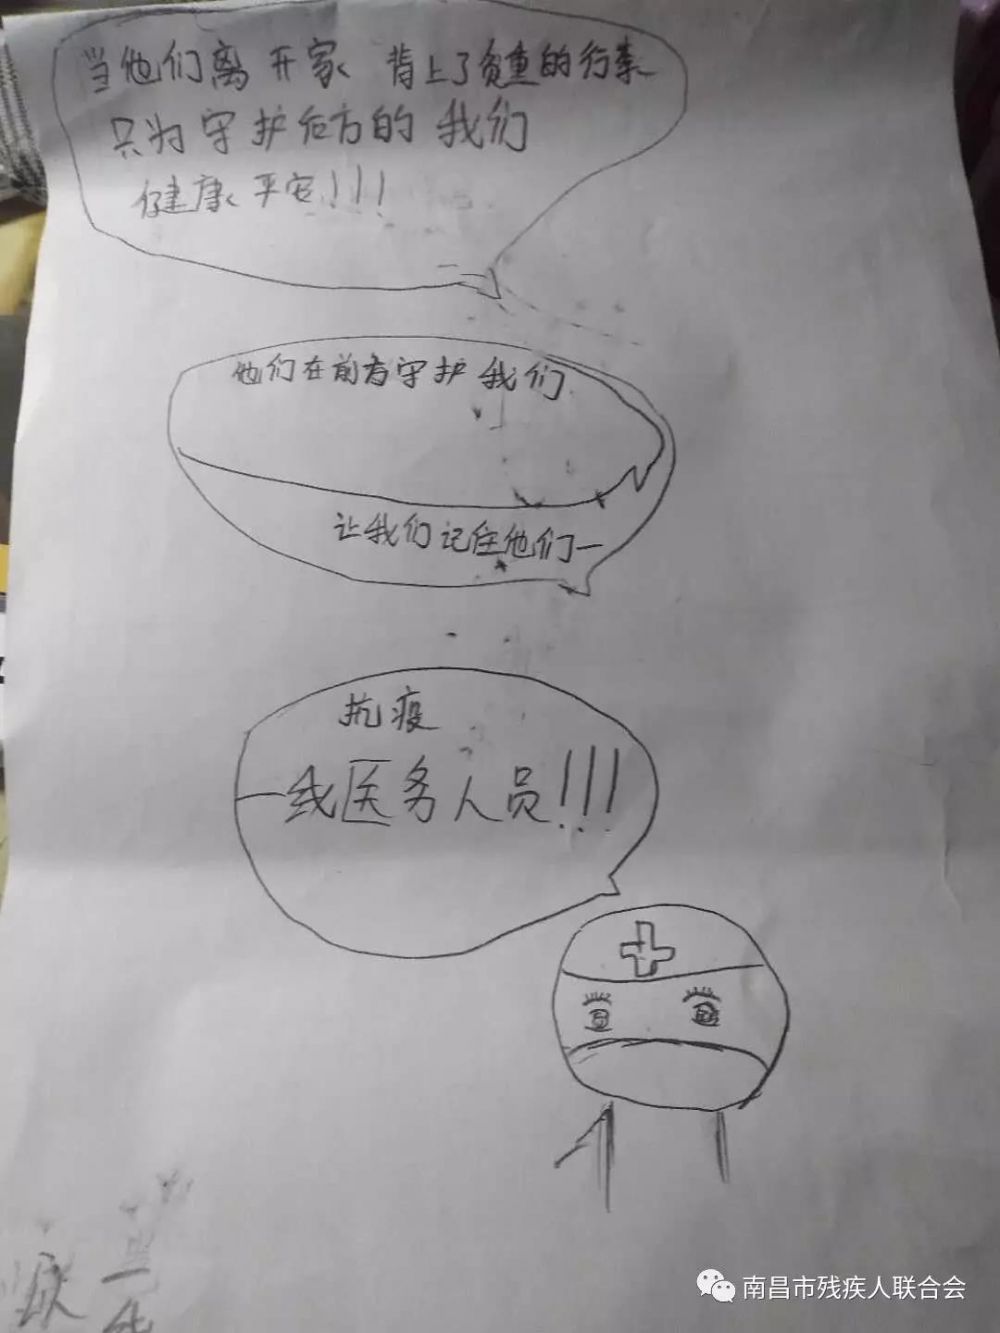 当他们离开家 背上了负重的行囊
只为守护后方的我们
健康平安!!!
他们在前方守护我们
让我们记住他们一
抗疫
一线医务人员!!!
一线
南昌市残疾人联合会